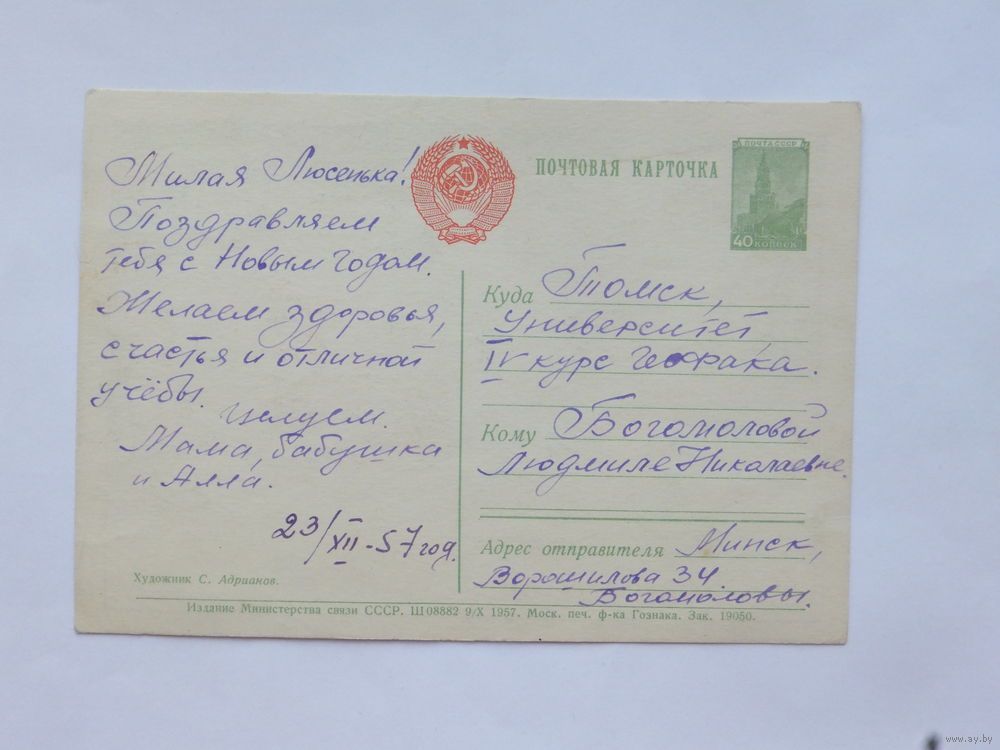 Милая Люсенька!
Поздравляем
тебя с Новым годом.
Желаем здоровья,
счастья и отличной
учёбы.
Целуем.
Мама, бабушка
и Алла.
23/XII-57 год.
Художник С. Адрианов.
ПОЧТОВАЯ КАРТОЧКА
ПОЧТА СССР
40 КОПЕЕК
Куда Томск,
Университет
IV курс Геофака.
Кому Богомоловой
Людмиле Николаевне.
Адрес отправителя Минск,
Ворошилова 34
Богомоловы.
Издание Министерства связи СССР. Ш 08882 9/X 1957. Моск. печ. ф-ка Гознака. Зак. 19050.
www.ay.by